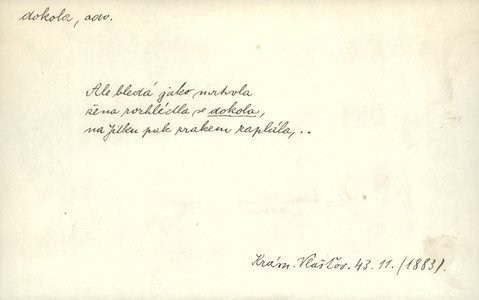 dokola, adv.
Ale bledá jako mrtvola
žena rozhlédla se dokola,
na Jitku pak zrakem zaplála, ..
Krám. Vlašťov. 43. 11. (1883).